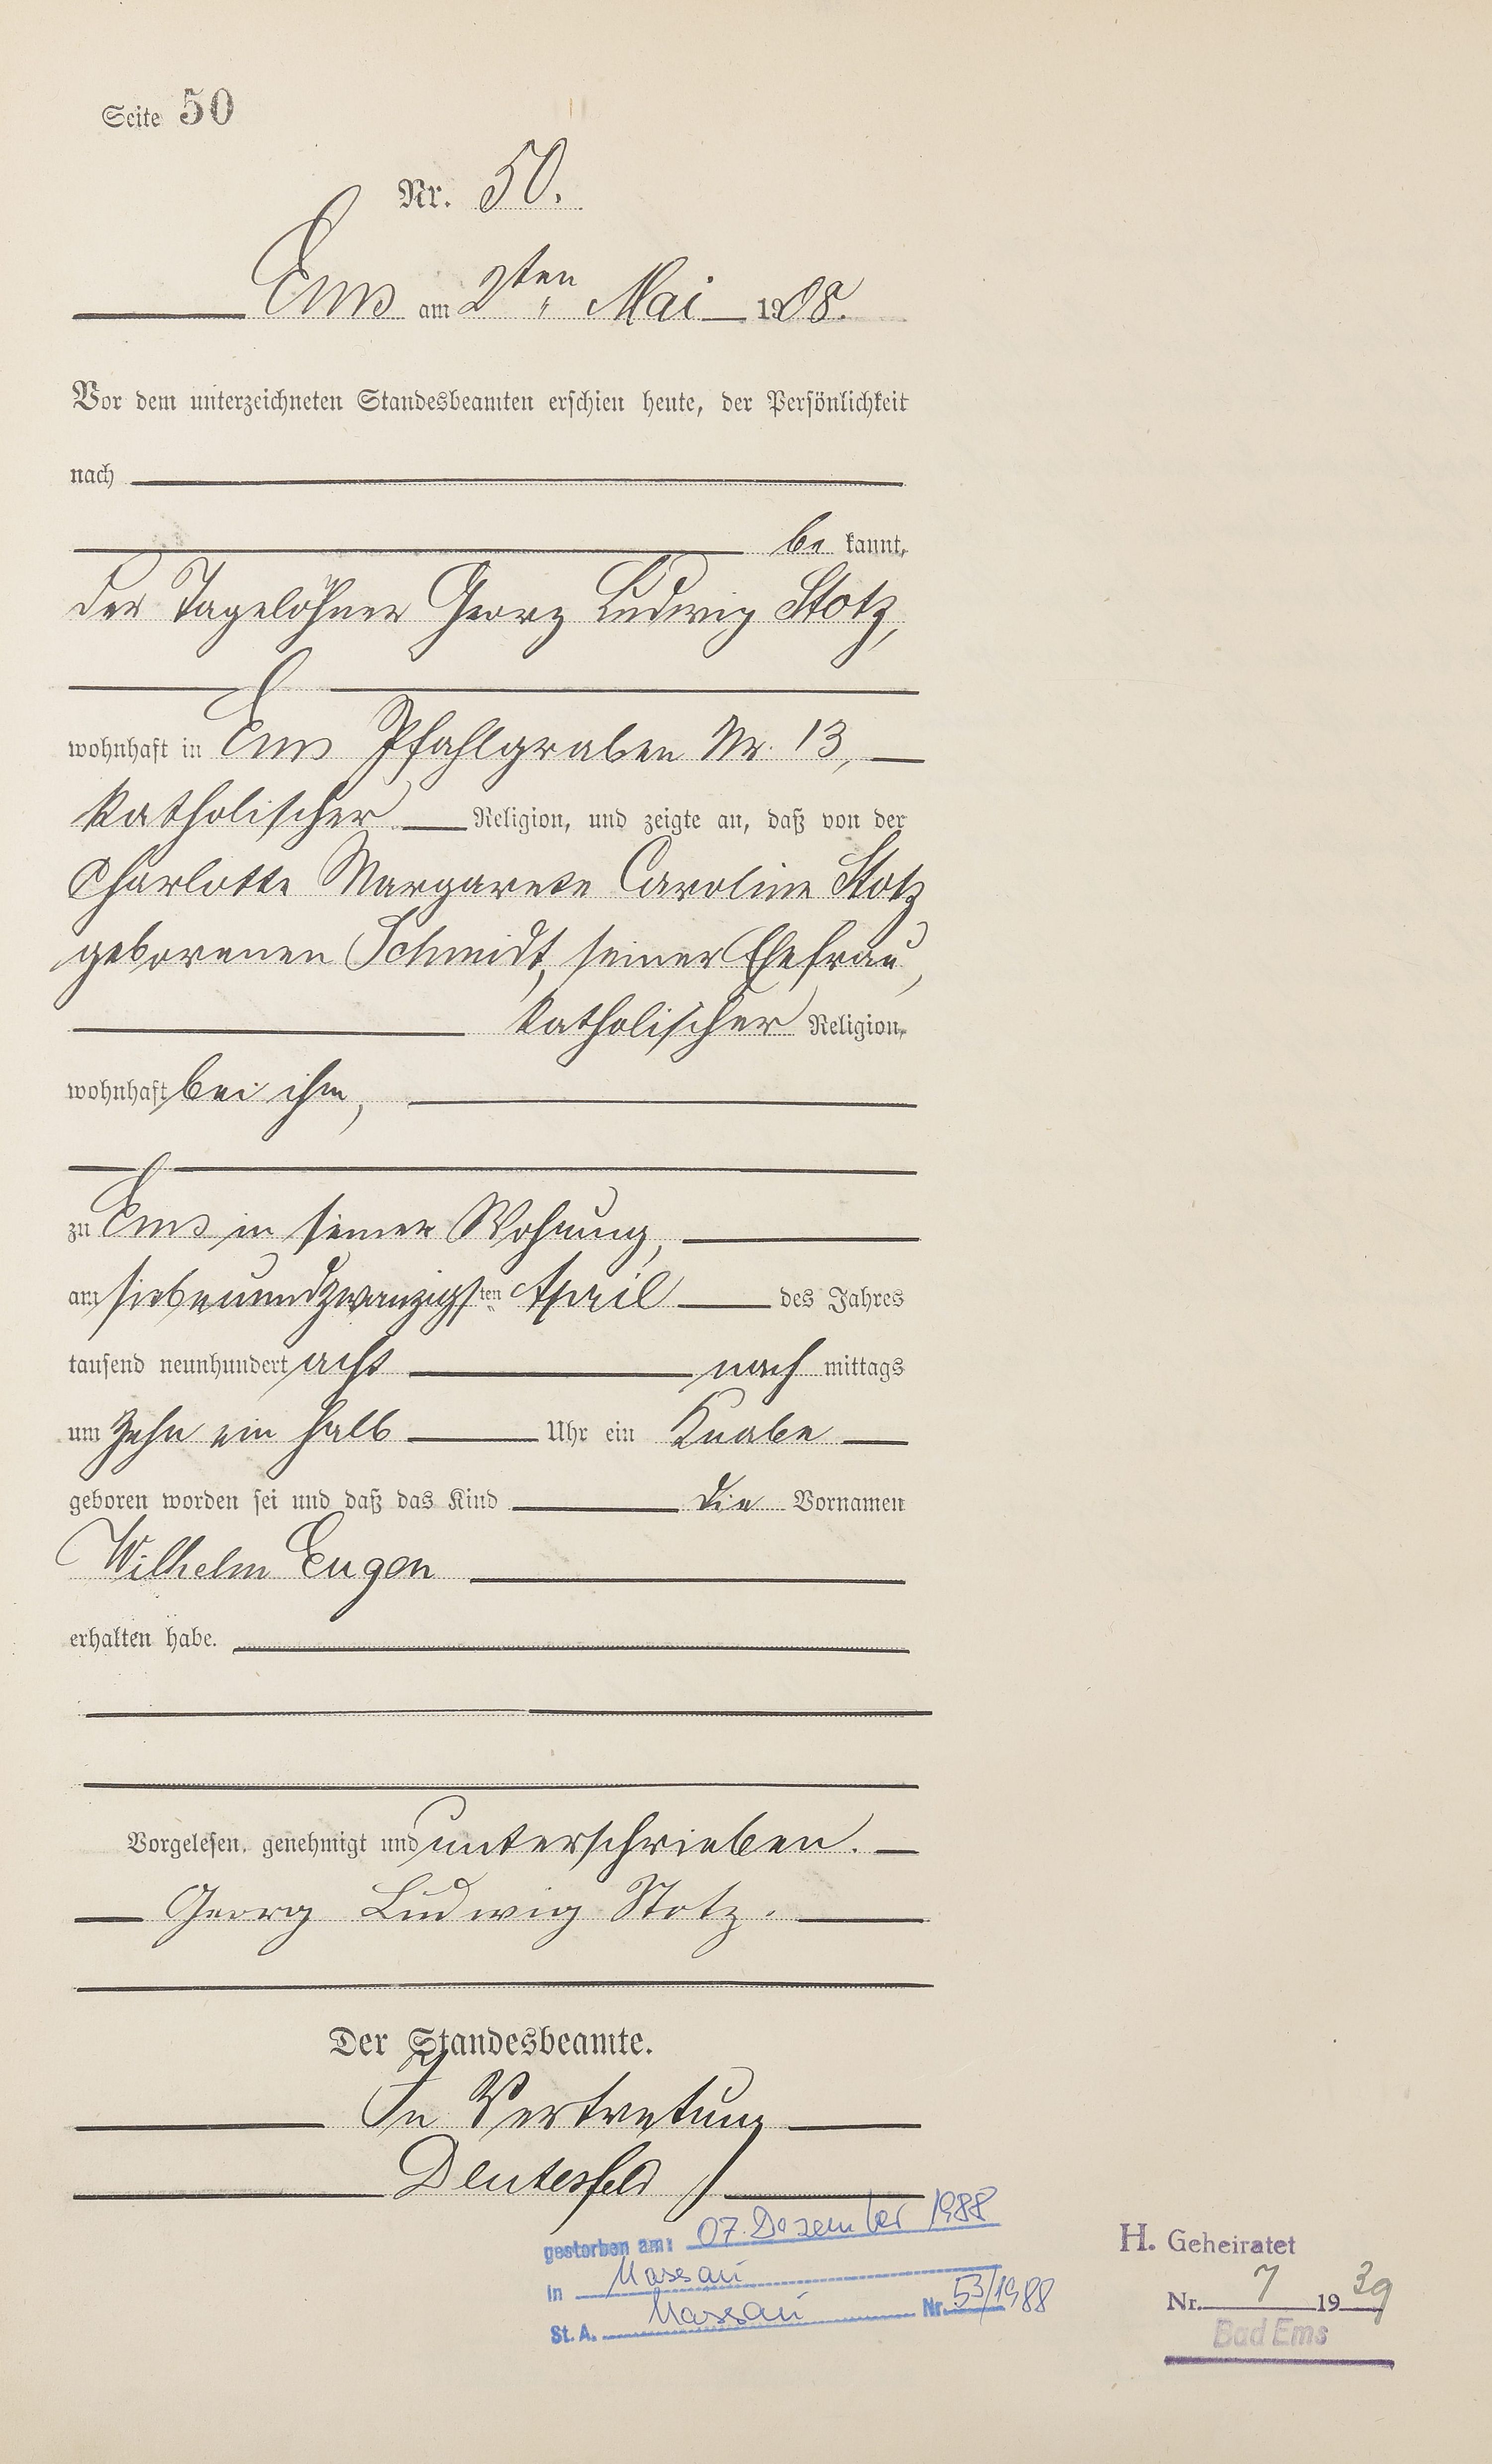 Seite 50
Nr. 50.
Ems am 2ten Mai 1908.
Vor dem unterzeichneten Standesbeamten erschien heute, der Persönlichkeit
nach
be kannt,
der Tagelöhner Georg Ludwig Stotz,
wohnhaft in Ems Pfahlgraben Nr. 13,
katholischer Religion, und zeigte an, daß von der
Charlotte Margarete Caroline Stotz
geborenen Schmidt, seiner Ehefrau,
katholischer Religion,
wohnhaft bei ihm,
zu Ems in seiner Wohnung,
am siebenundzwanzigsten April des Jahres
tausend neunhundert acht nach mittags
um zehn ein halb Uhr ein Knabe
geboren worden sei und daß das Kind die Vornamen
Wilhelm Eugen
erhalten habe.
Vorgelesen, genehmigt und unterschrieben.
Georg Ludwig Stotz.
Der Standesbeamte.
In Vertretung
gestorben am: 07. Dezember 1988
in Nassau
St. A. Nassau Nr. 53/1988
H. Geheiratet
Nr. 7 1939
Bad Ems